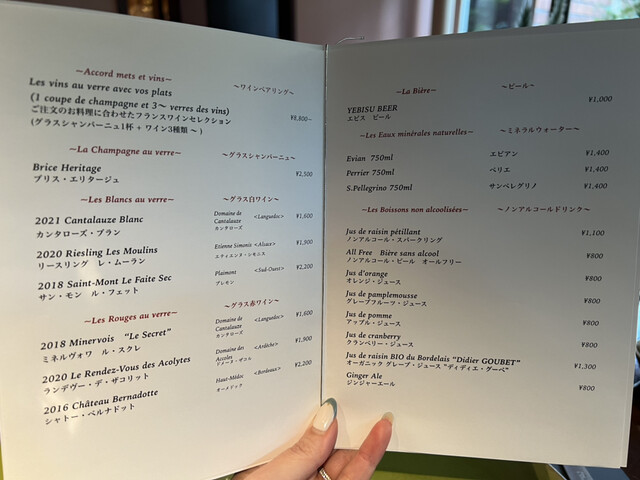 ~Accord mets et vins~ ~ワインペアリング~
Les vins au verre avec vos plats
(1 coupe de champagne et 3~ verres des vins)
ご注文のお料理に合わせたフランスワインセレクション ¥8,800~
(グラスシャンパーニュ1杯 + ワイン3種類 ~ )
~La Champagne au verre~ ~グラスシャンパーニュ~
Brice Heritage ¥2,500
ブリス・エリタージュ
~Les Blancs au verre~ ~グラス白ワイン~
2021 Cantalauze Blanc Domaine de Cantalauze <Languedoc> ¥1,600
カンタローズ・ブラン カンタローズ
2020 Riesling Les Moulins Etienne Simonis <Alsace> ¥1,900
リースリング レ・ムーラン エティエンヌ・シモニス
2018 Saint-Mont Le Faite Sec Plaimont <Sud-Ouest> ¥2,200
サン・モン ル・フェット プレモン
~Les Rouges au verre~ ~グラス赤ワイン~
2018 Minervois "Le Secret" Domaine de Cantalauze <Languedoc> ¥1,600
ミネルヴォワ ル・スクレ カンタローズ
2020 Le Rendez-Vous des Acolytes Domaine des Accoles <Ardèche> ¥1,900
ランデヴー・デ・ザコリット ドメーヌ・デ・ザコル
2016 Château Bernadotte Haut-Médoc <Bordeaux> ¥2,200
シャトー・ベルナドット オーメドック
~La Bière~ ~ビール~
YEBISU BEER ¥1,000
エビス ビール
~Les Eaux minérales naturelles~ ~ミネラルウォーター~
Evian 750ml エビアン ¥1,400
Perrier 750ml ペリエ ¥1,400
S.Pellegrino 750ml サンペレグリノ ¥1,400
~Les Boissons non alcoolisées~ ~ノンアルコールドリンク~
Jus de raisin pétillant ¥1,100
ノンアルコール・スパークリング
All Free Bière sans alcool ¥800
ノンアルコール・ビール オールフリー
Jus d'orange ¥800
オレンジ・ジュース
Jus de pamplemousse ¥800
グレープフルーツ・ジュース
Jus de pomme ¥800
アップル・ジュース
Jus de cranberry ¥800
クランベリー・ジュース
Jus de raisin BIO du Bordelais "Didier GOUBET" ¥1,300
オーガニック グレープ・ジュース "ディディエ・グーベ"
Ginger Ale ¥800
ジンジャーエール